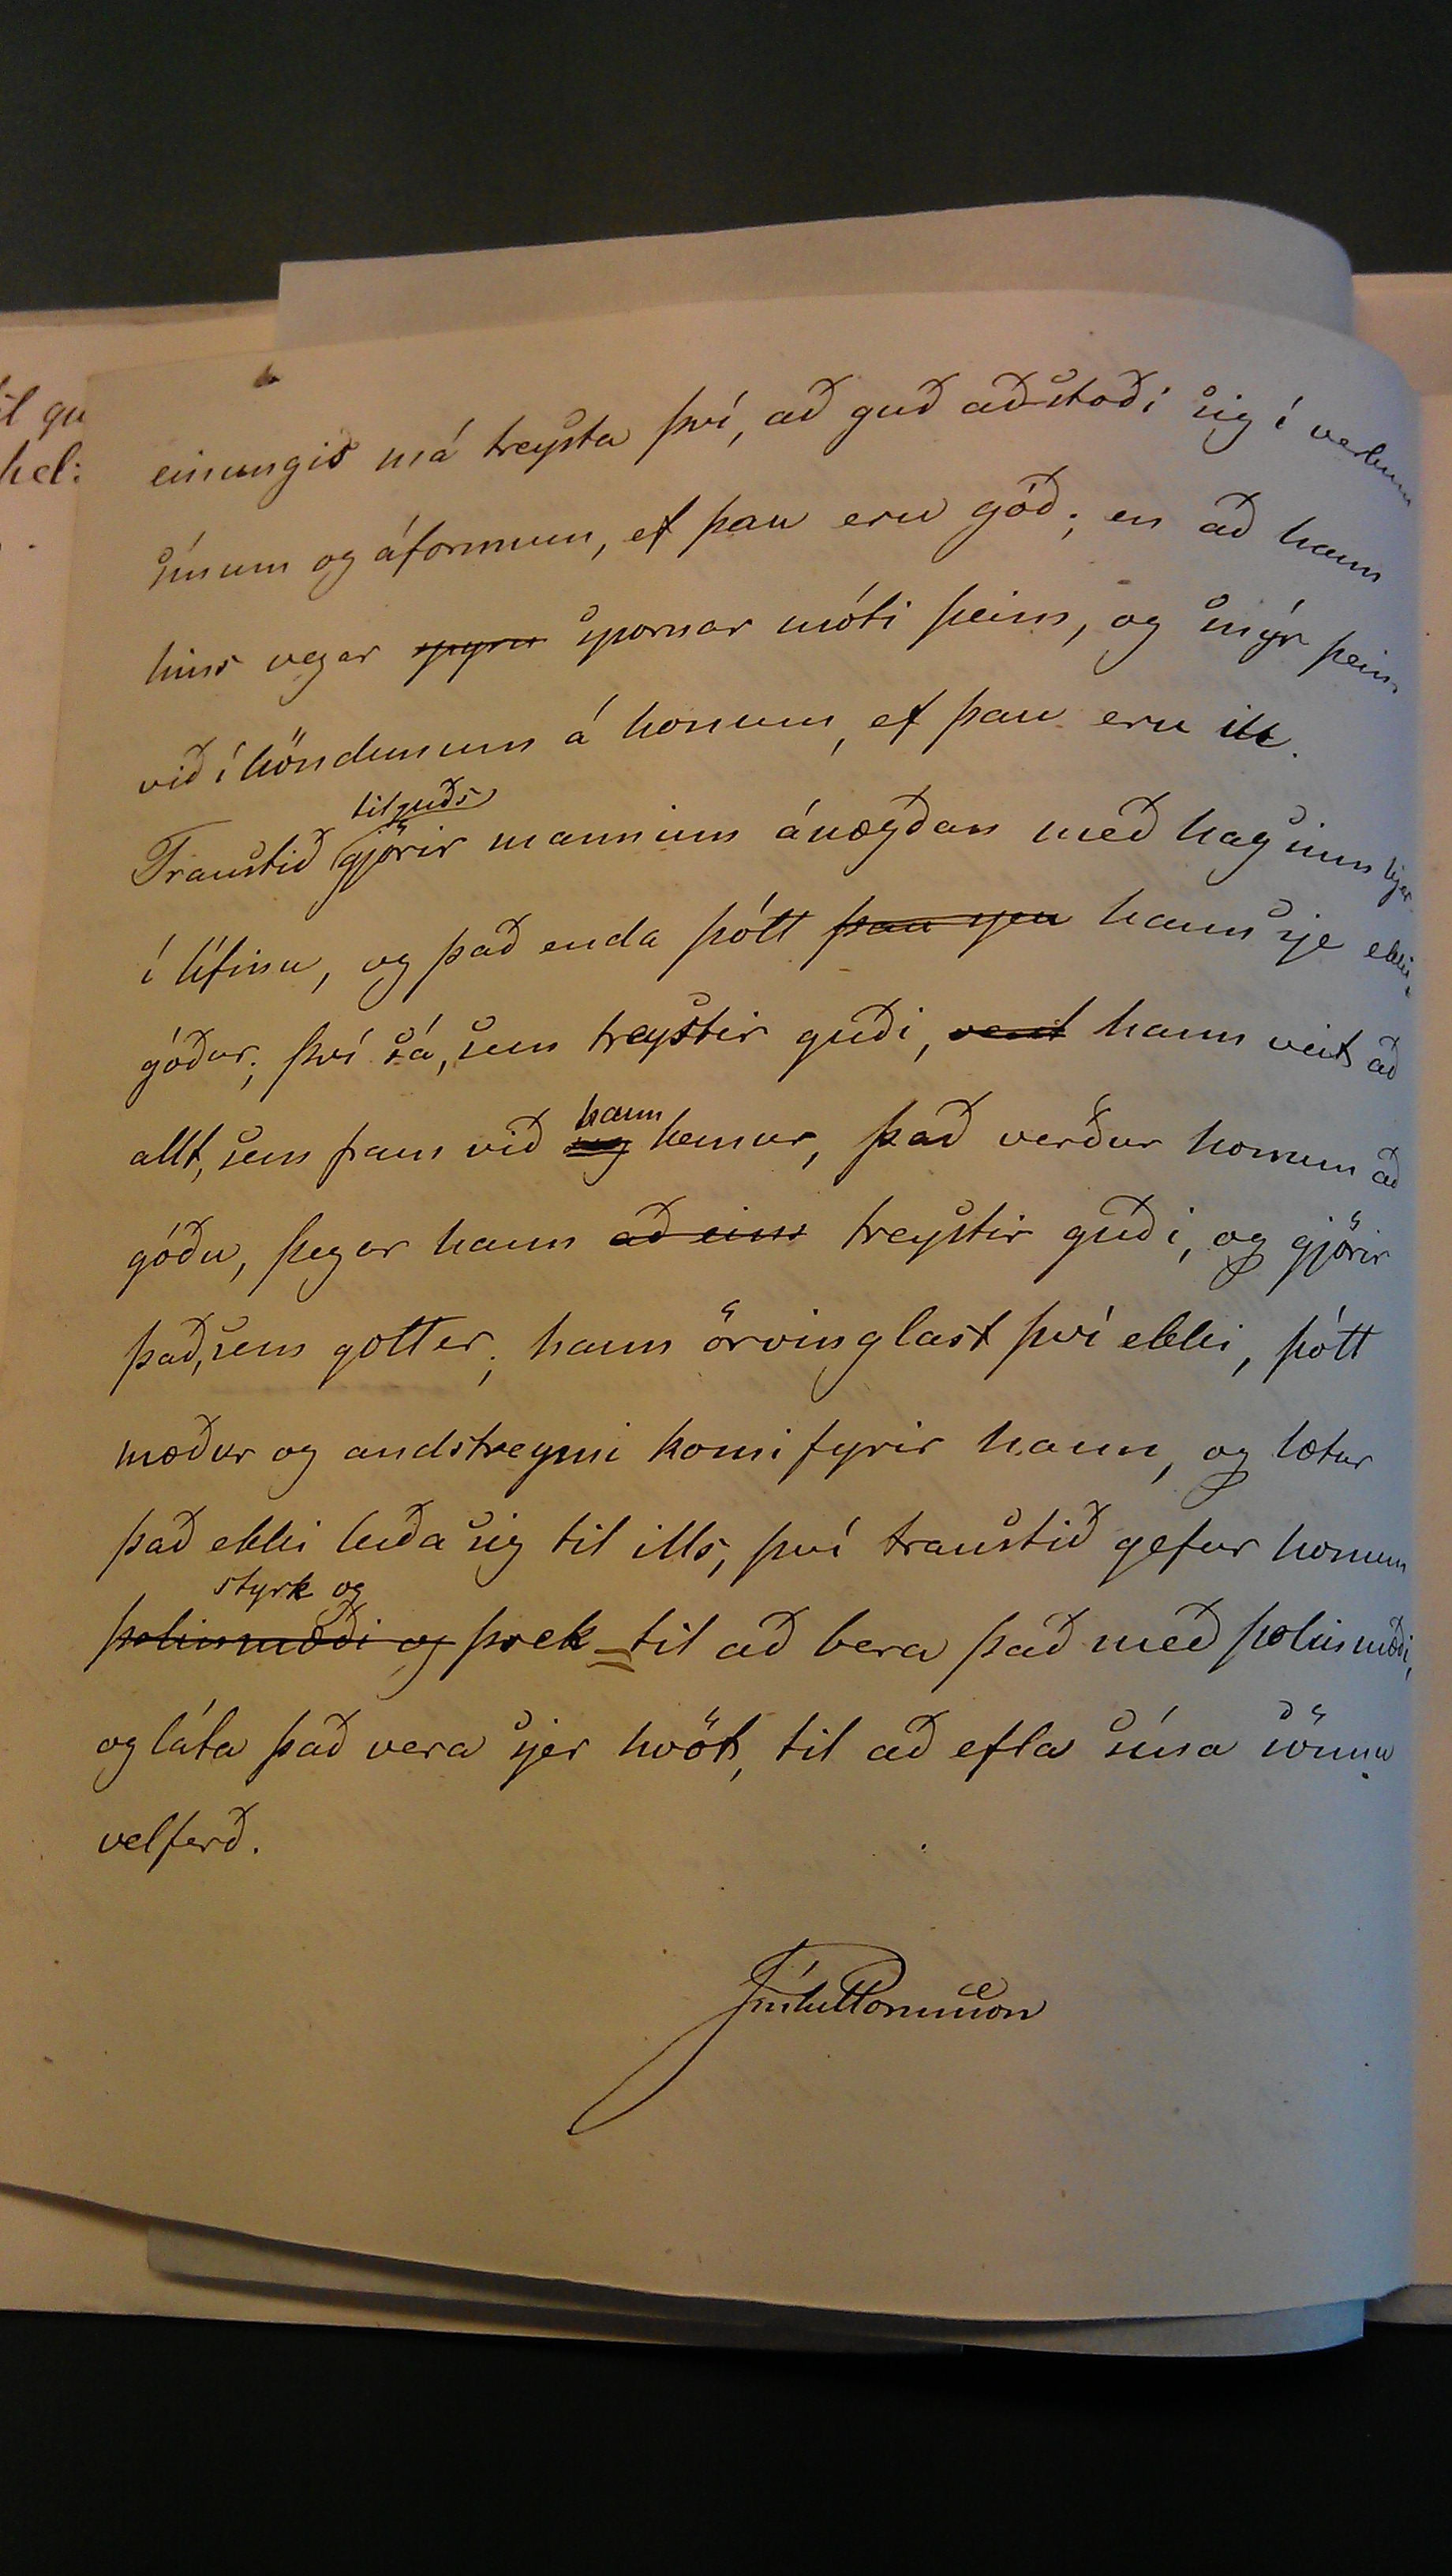 einungis má treysta því, að guð aðstoði sig í verkum
sínum og áformum, ef þau eru góð; en að hann
hins vegar spornar móti þeim, og snýr þeim
við í höndunum á honum, ef þau eru ill.
til guðs
Traustið gjörir manninn ánægðan með hag sinn hjer
í lífinu, og það enda þótt þau sjeu hann sje ekki
góður; því sá, sem treystir guði, veit hann veit að
hann
allt, sem fram við sig kemur, það verður honum að
góðu, þegar hann að eins treystir guði, og gjörir
það, sem gott er; hann örvinglast því ekki, þótt
mæður og andstreymi komi fyrir hann, og lætur
það ekki leiða sig til ills, því traustið gefur honum
styrk og
þolinmæði og þrek til að bera það með þolinmæði,
og láta það vera sjer hvöt, til að efla sína sönnu
velferð.